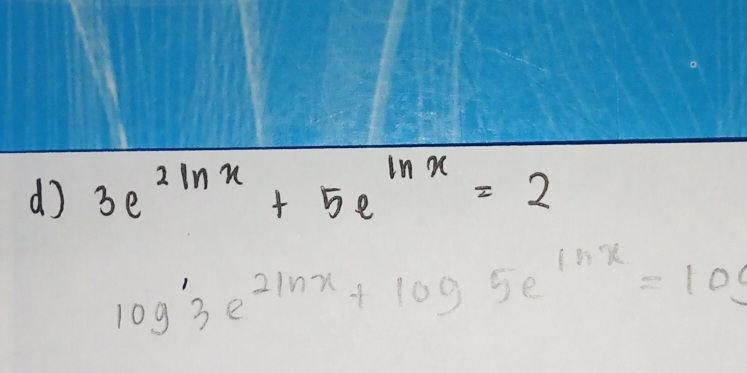 d) 3e^{2 ln x} + 5e^{ln x} = 2
log 3e^{2lnx} + log 5e^{lnx} = log